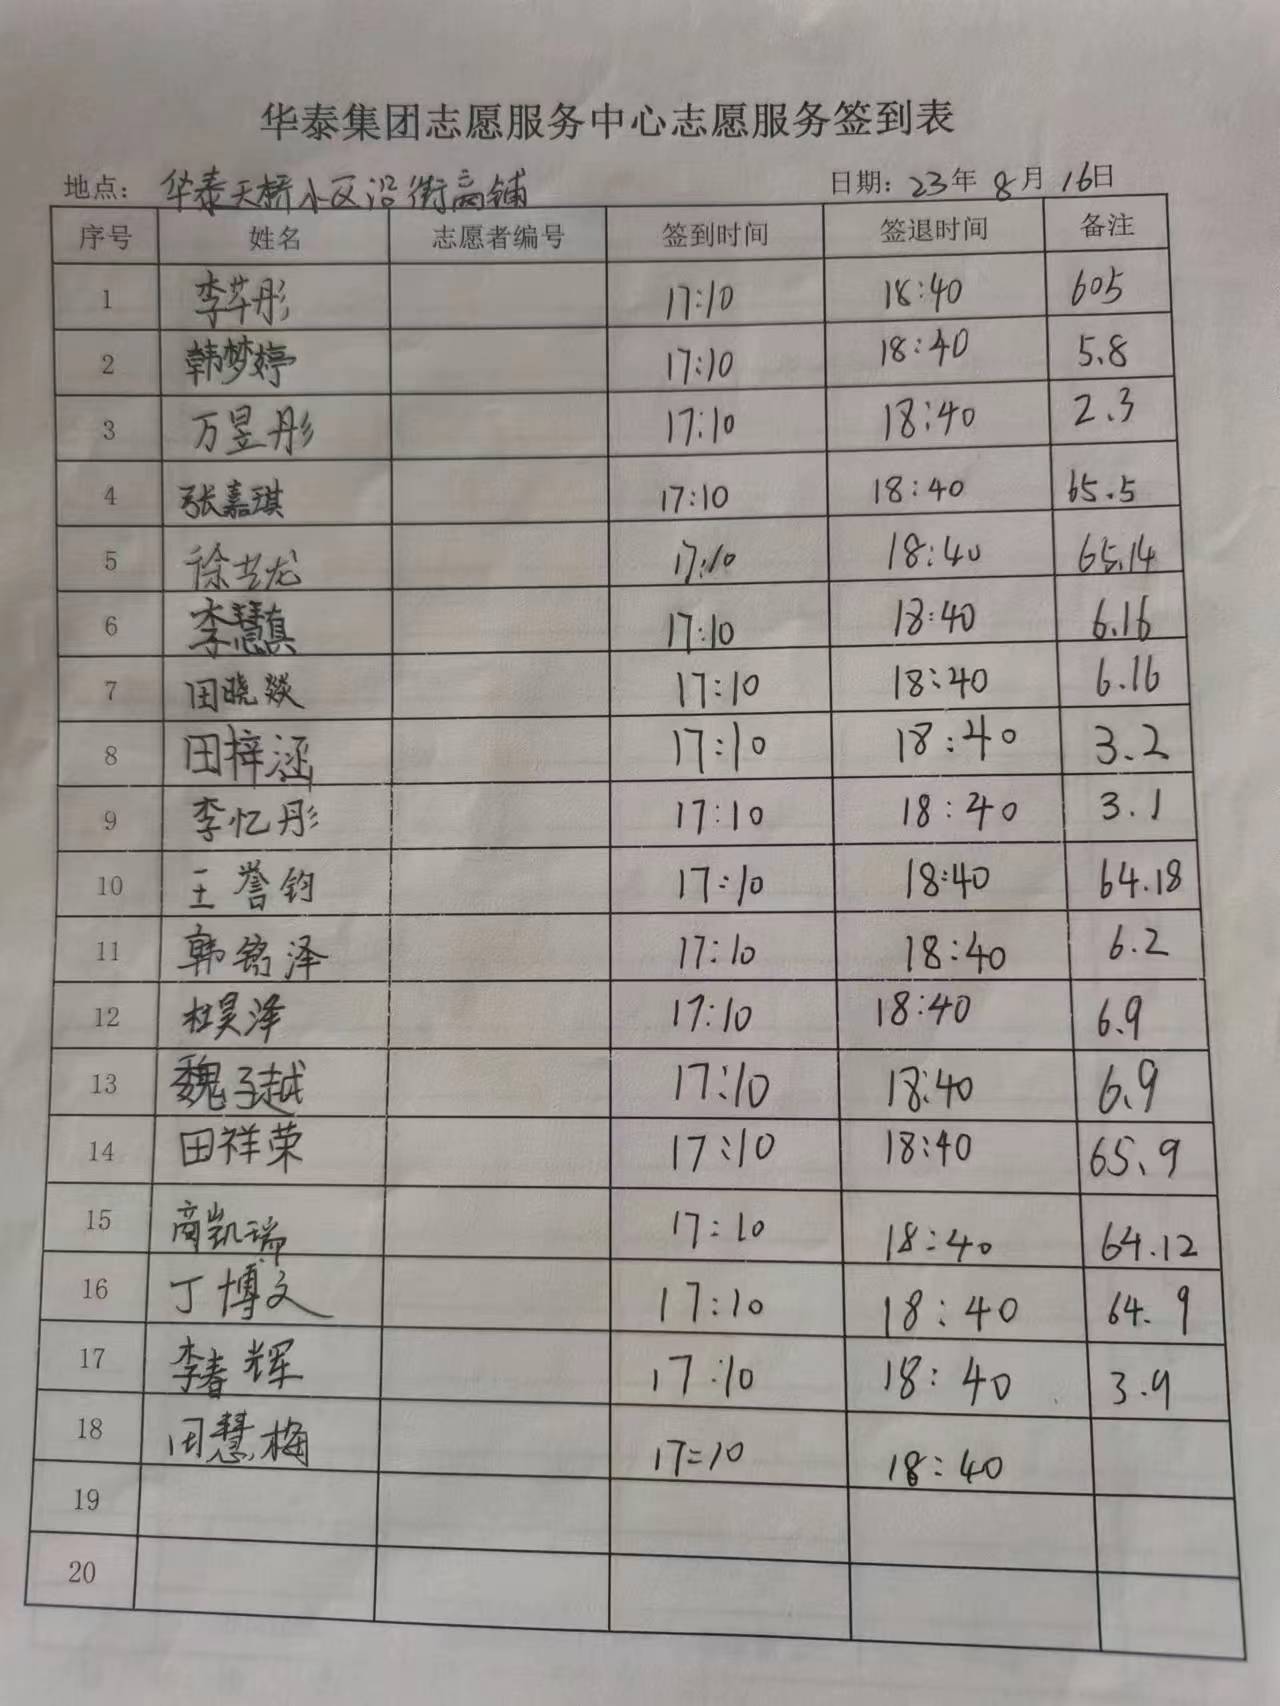 华泰集团志愿服务中心志愿服务签到表
地点：华泰天桥小区沿街商铺 日期：23年8月16日
序号 姓名 志愿者编号 签到时间 签退时间 备注
1 李芊彤 17:10 18:40 605
2 韩梦婷 17:10 18:40 5.8
3 万昱彤 17:10 18:40 2.3
4 张嘉琪 17:10 18:40 65.5
5 徐艺龙 17:10 18:40 65.14
6 李慧真 17:10 18:40 6.16
7 田晓燚 17:10 18:40 6.16
8 田梓涵 17:10 18:40 3.2
9 李忆彤 17:10 18:40 3.1
10 王誉钧 17:10 18:40 64.18
11 韩铭泽 17:10 18:40 6.2
12 杜昊泽 17:10 18:40 6.9
13 魏子越 17:10 18:40 6.9
14 田祥荣 17:10 18:40 65.9
15 商凯瑞 17:10 18:40 64.12
16 丁博文 17:10 18:40 64.9
17 李春辉 17:10 18:40 3.9
18 田慧梅 17:10 18:40
19
20